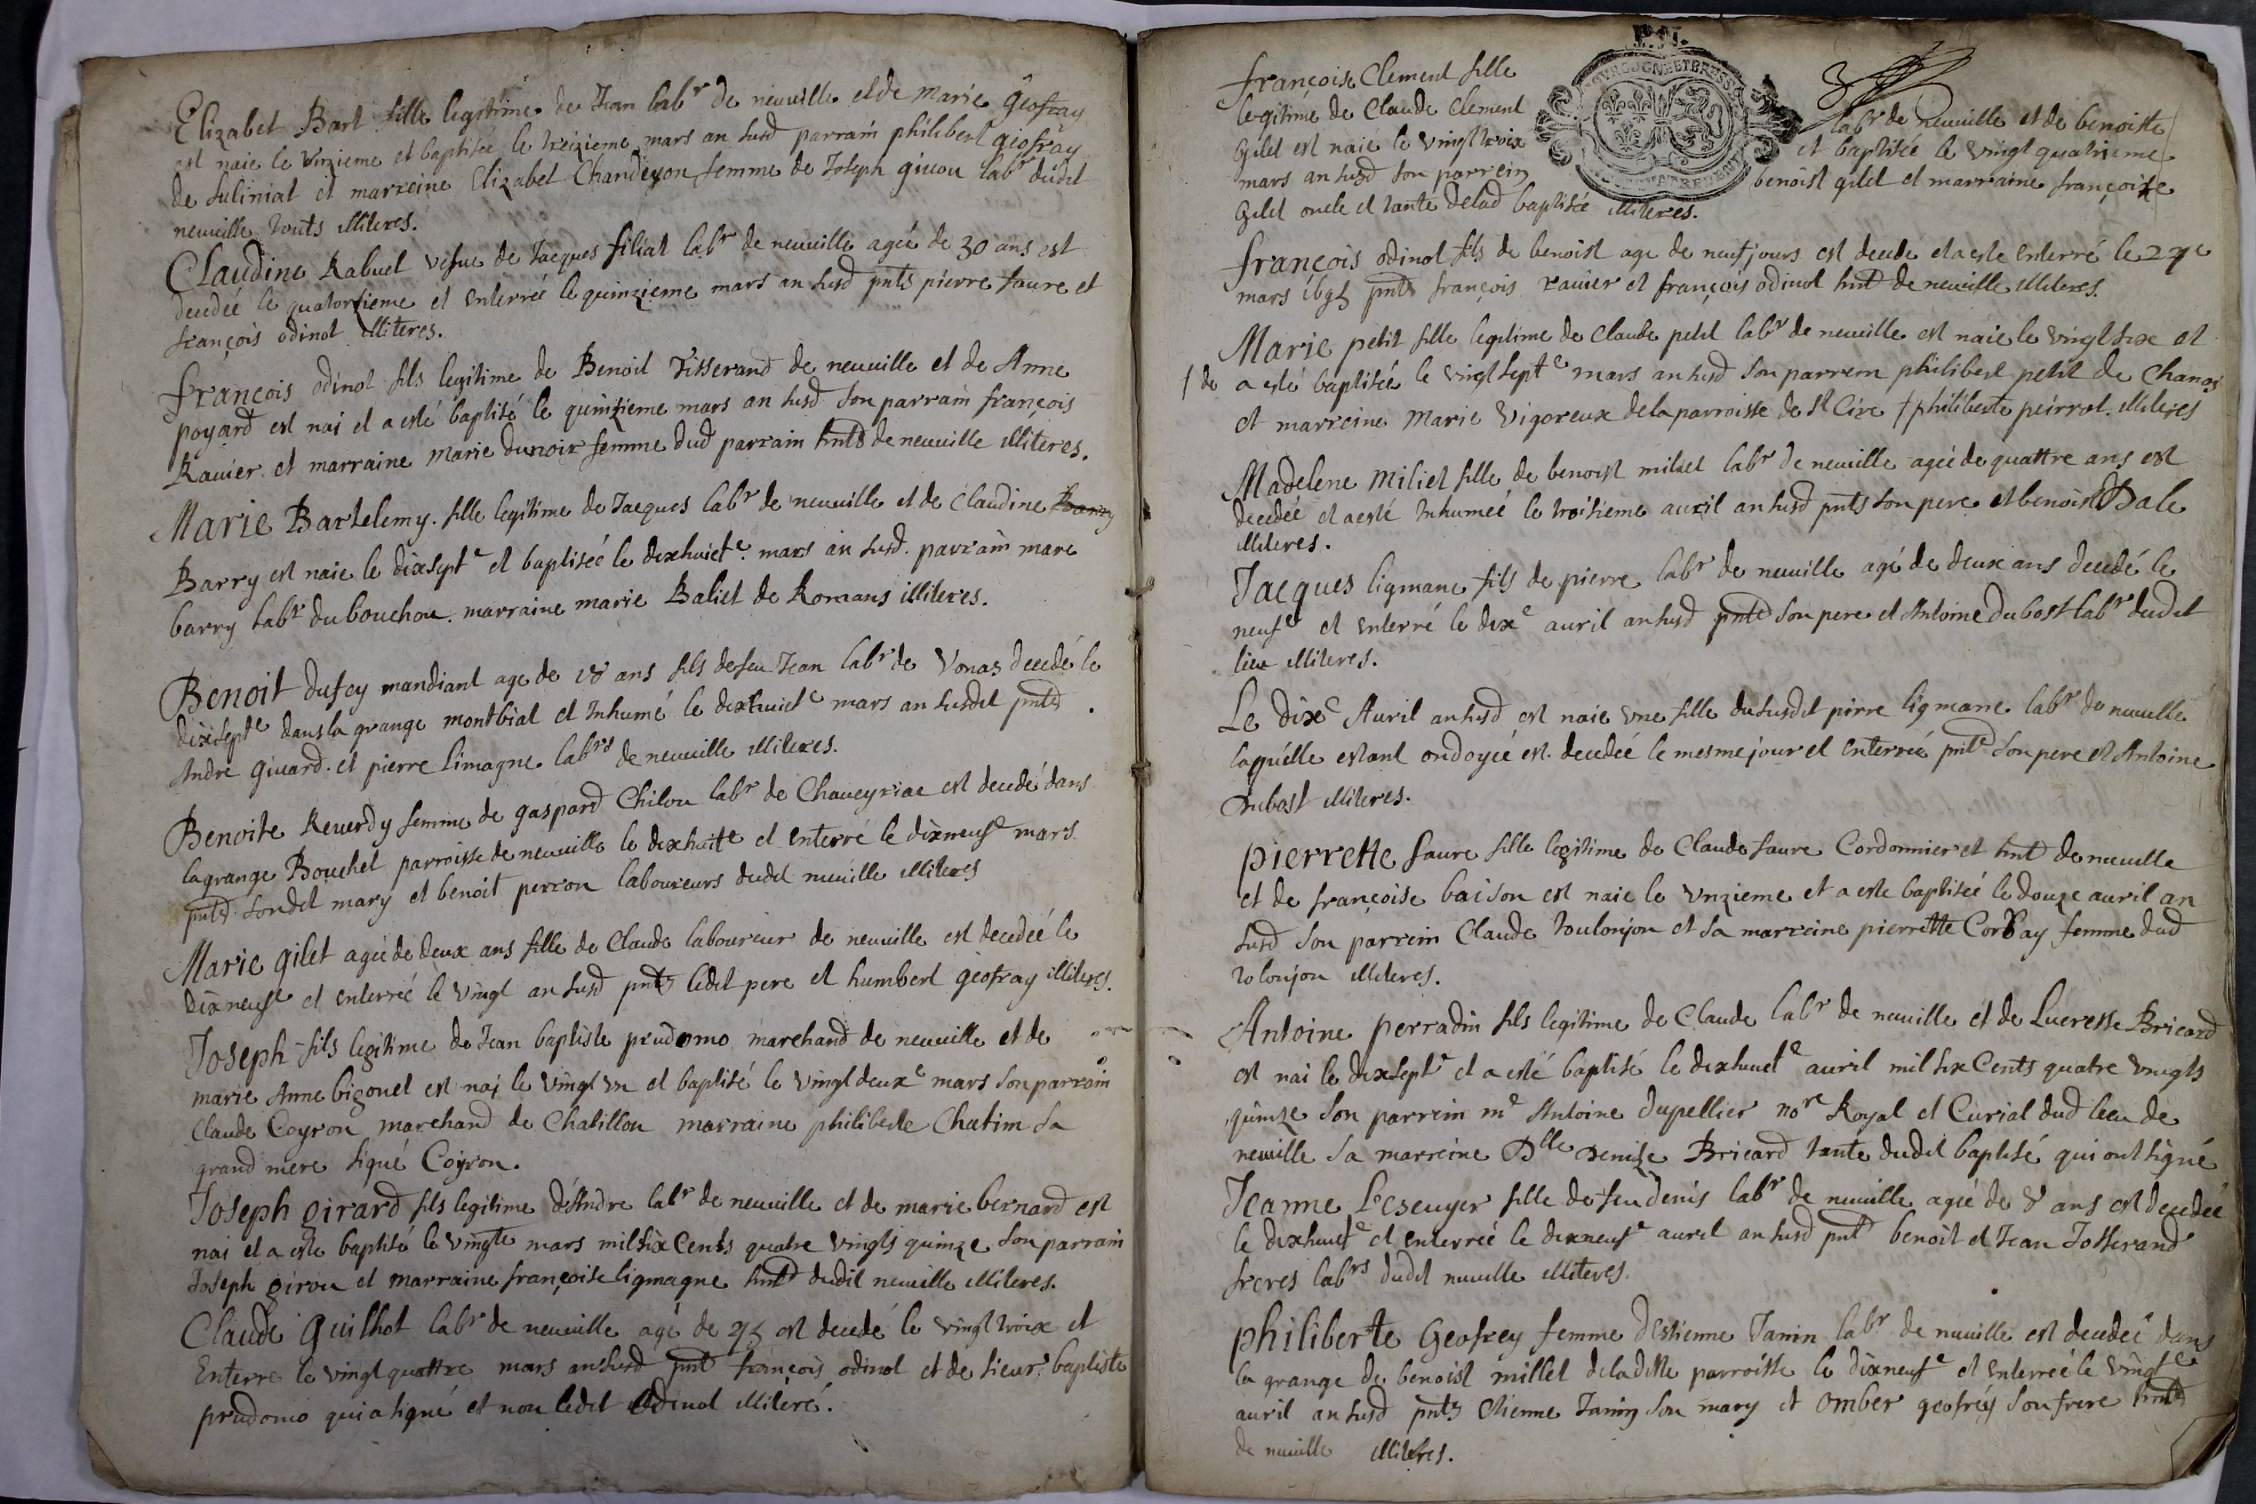 Elizabet Bart fille legitime de Jean labr de neuuille et de marie geofray
est naie le Vnzieme et baptisée le treizieme mars an susd parrain philibert geofray
de suliniat et marreine Elizabet Chandeyon femme de Joseph girou labr dudit
neuuille touts illiteres.
Claudine Rabuel vefue de Jacques filiat labr de neuuille ageé de 30 ans est
decedeé le quatorzieme et Enterreé le quinzieme mars an susd pnts pierre faure et
françois odinot illiteres.
françois odinot fils legitime de Benoit Tisserand de neuuille et de Anne
poyard est nai et a esté baptisé le quinzieme mars an susd son parrain françois
Rauier et marraine marie dunoir femme dud parrain hnts de neuuille illiteres.
Marie Bartelemy fille legitime de Jacques labr de neuuille et de Claudine
Barry est naie le dixsepte et baptiseé le dixhuicte mars an susd. parrain marc
barry labr du bouchou. marraine marie Baliet de Romans illiteres.
Benoit dufey mandiant age de 18 ans fils de feu Jean labr de Vonas decedé le
dixsepte dans la grange montbial et Inhumé le dixhuicte mars an susdit pnts
Andre giuard et pierre limagne labrs de neuuille illiteres.
Benoite Reuerdy femme de gaspard Chilou labr de Chaueyriac est decedé dans
la grange Bouchet parroisse de neuuille le dixhuite et Enterré le dixneufe mars
pnts sondit mary et benoit perron laboureurs dudit neuuille illiteres
Marie gilet ageé de deux ans fille de Claude laboureur de neuuille est decedeé le
dixneufe et enterreé le vingt an susd pnts ledit pere et humbert geofray illiteres.
Joseph fils legitime de Jean baptiste prudomo marchand de neuuille et de
marie Anne bigonet est nai le vingt vn et baptisé le vingt deuxe mars son parrain
Claude Coyron marchand de Chatillon marraine philiberte Chatim sa
grand mere signé Coyron.
Joseph girard fils legitime d'Andre labr de neuuille et de marie bernard est
nai et a este baptisé le vingte mars mil six Cents quatre vingts quinze son parrain
Joseph girou et marraine françoise ligmagne hnts dudit neuuille illiteres.
Claude guilhot labr de neuuille agé de 75 est decedé le vingt troix et
Enterre le vingt quattre mars an susd pnt françois odinot et de sieur baptiste
prudomo qui a signé et non ledit odinot illiteré.
françoise Clement fille
legitime de Claude Clement labr de neuuille et de benoitte
gilet est naie le vingt troix et baptiseé le vingt quatrieme
mars an susd son parrein benoist gilet et marraine françoise
gilet oncle et tante de lad baptiseé illiteres.
françois odinot fils de benoist age de neuf jours est decede et a este enterré le 24e
mars 1695 pnts françois rauier et françois odinot hnts de neuuille illiteres.
Marie petit fille legitime de Claude petit labr de neuuille est naie le vingt six et
† de a esté baptiseé le vingt septe mars an susd son parrein philibert petit de Chanos
et marreine marie vigoreux de la parroisse de st Ciré † philiberte peirrot illiteres
Madelene miliet fille de benoist miliet labr de neuuille ageé de quattre ans est
decedeé et a esté Inhumeé le troisieme auril an susd pnts son pere et benoist Bale
illiteres.
Jacques ligmane fils de pierre labr de neuuille agé de deux ans decedé le
neufe et enterré le dixe auril an susd pnts son pere et Antoine dubost labr dudit
lieu illiteres.
Le dixe Auril an susd est naie vne fille du susdit pirre ligmane labr de neuuille
laquelle estant ondoyeé est decedeé le mesme jour et enterreé pnts son pere et Antoine
dubost illiteres.
pierrette faure fille legitime de Claude faure Cordonnier et hnt de neuuille
et de françoise baison est naie le vnzieme et a este baptiseé le douze auril an
susd son parrein Claude toulonjon et sa marreine pierrette Corbay femme dud
tolonjon illiteres.
Antoine perradin fils legitime de Claude labr de neuuille et de Lucresse Bricard
est nai le dixsepte et a esté baptisé le dixhuicte auril mil six Cents quatre vingts
quinze son parrein me Antoine dupellier nore Royal et Curial dud lieu de
neuuille sa marreine Dlle Denise Bricard tante dudit baptisé qui ont signé
Jeanne Lescuyer fille de feu denis labr de neuuille ageé de 8 ans est decedeé
le dixhuicte et enterreé le dixneufe auril an susd pnt benoit et Jean Josserand
freres labrs dudit neuuille illiteres.
philiberte Geofrey femme d'Estienne Janin labr de neuuille est decedeé dans
la grange de benoist millet de la ditte parroisse le dixneufe et enterreé le vingte
auril an susd pnts Etienne Janin son mary et omber geofrey son frere hnts
de neuuille illiteres.